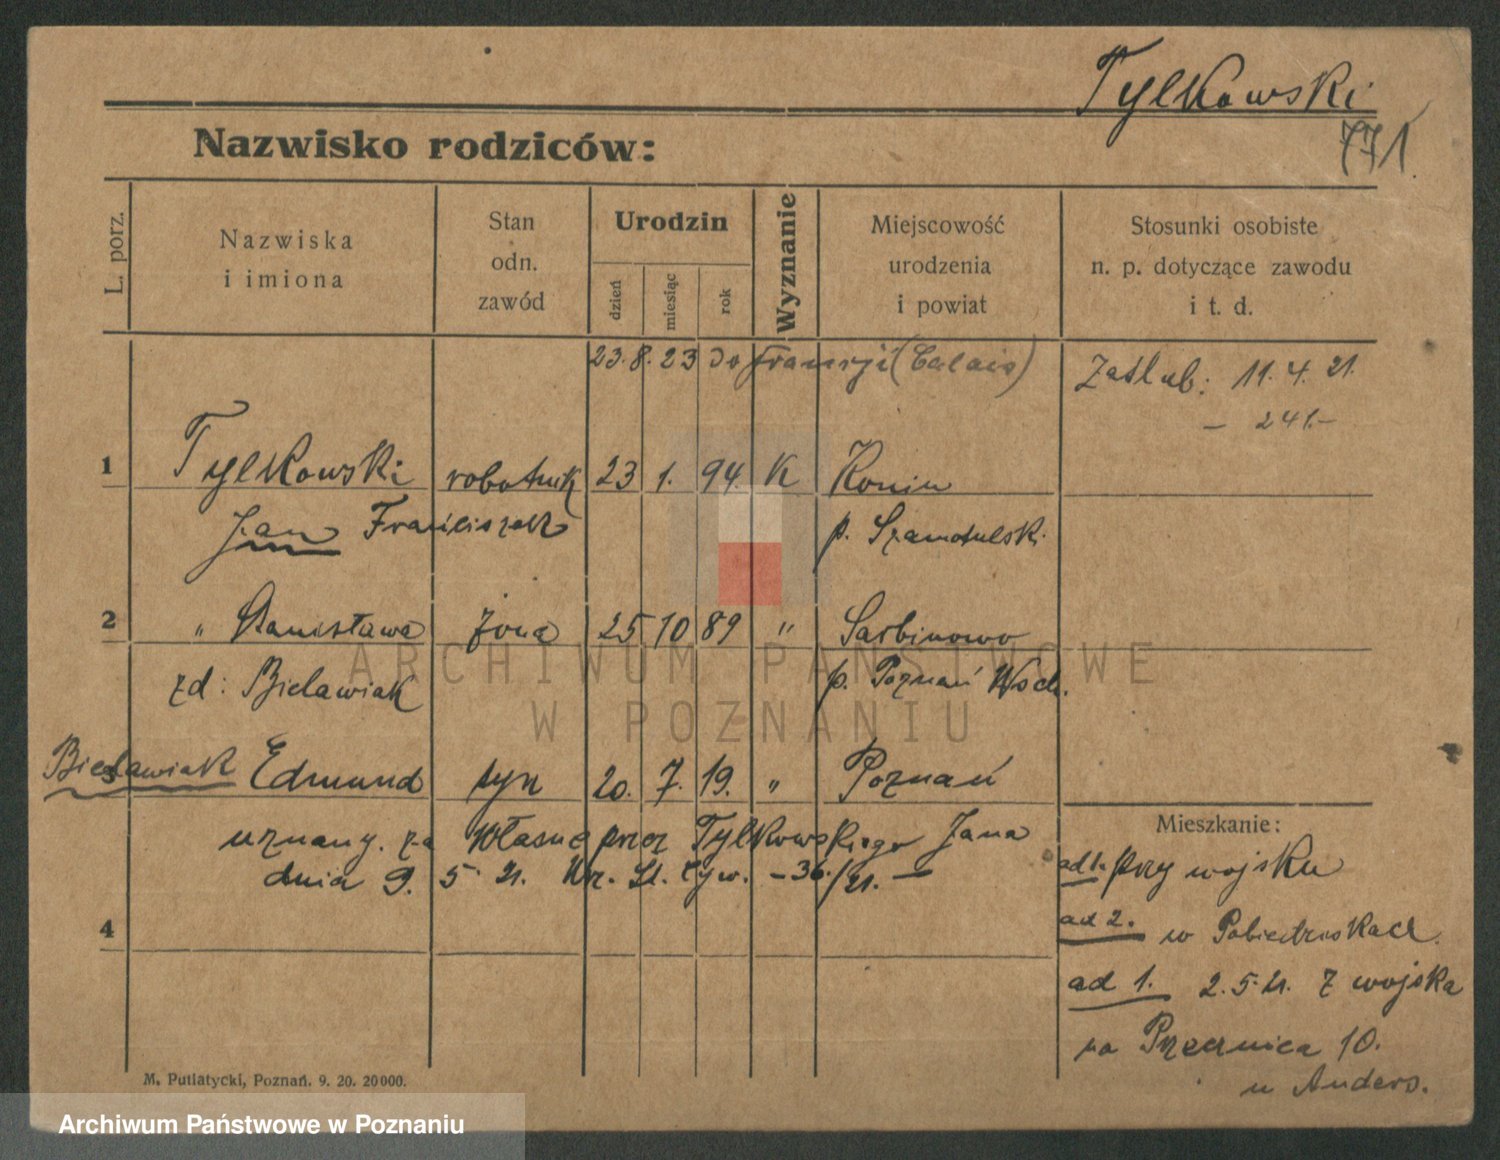 Tylkowski
771
Nazwisko rodziców:
L. porz.
Nazwiska
i imiona
Stan
odn.
zawód
Urodzin
dzień
miesiąc
rok
Wyznanie
Miejscowość
urodzenia
i powiat
Stosunki osobiste
n. p. dotyczące zawodu
i t. d.
23. 8. 23 do Francji (Calais)
Zaślub: 11. 4. 21.
- 241.-
1 Tylkowski robotnik 23 1. 94. K Konin
Jan Franciszek p. Szamotulski.
2 " Stanisława żona 25 10 89 " Sarbinowo
zd: Bielawiak p. Poznań Wsch.
Bielawiak Edmund syn 20. 7. 19. " Poznań
uznany. za własne przez Tylkowskiego Jana
dnia 9. 5. 21. Urz. St. Cyw. - 36./21. -
4
Mieszkanie:
ad 1. przy wojsku
ad 2. w Pobiedziskach.
ad 1. 2. 5. 21. z wojska
na 10.
u Anders.
M. Putiatycki, Poznań. 9. 20. 20000.
ARCHIWUM PAŃSTWOWE
W POZNANIU
Archiwum Państwowe w Poznaniu